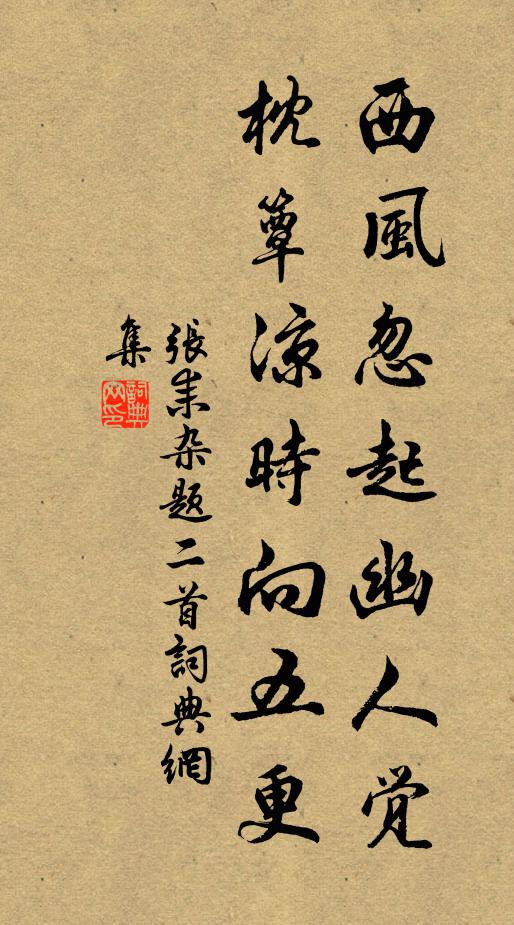 西風忽起幽人觉
枕簟涼時向五更
張耒杂题二首詞典網
集
詞典
网印